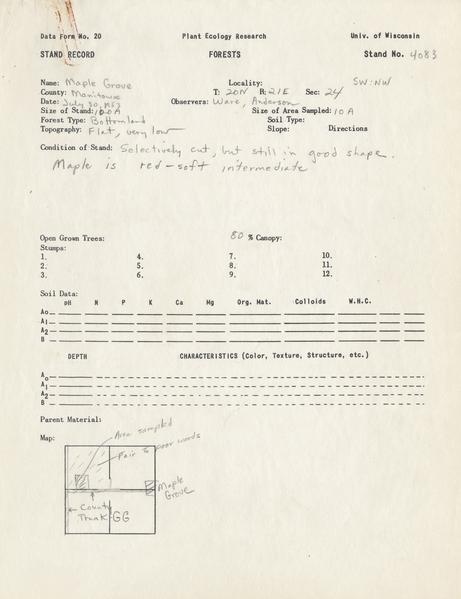 Data Form No. 20 Plant Ecology Research Univ. of Wisconsin
STAND RECORD FORESTS Stand No. 4083
Name: Maple Grove Locality: SW:NW
County: Manitowoc T: 20N R: 21E Sec: 24
Date: July 30, 1953 Observers: Ware, Anderson
Size of Stand: A Size of Area Sampled: 10 A
Forest Type: Bottomland Soil Type:
Topography: Flat, very low Slope: Directions
Condition of Stand: Selectively cut, but still in good shape.
Maple is red-soft intermediate
Open Grown Trees: 80 % Canopy:
Stumps:
1. 4. 7. 10.
2. 5. 8. 11.
3. 6. 9. 12.
Soil Data:
pH N P K Ca Mg Org. Mat. Colloids W.H.C.
Ao
A1
A2
B
DEPTH CHARACTERISTICS (Color, Texture, Structure, etc.)
Ao
A1
A2
B
Parent Material:
Map:
Area sampled
Fair to poor woods
Maple
Grove
County
Trunk GG